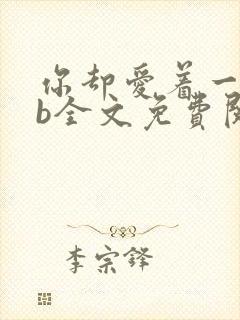 你却爱着一
b全文免费阅
李宗铎